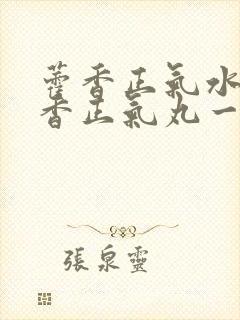 藿香正氣水
香正氣丸一
張泉靈